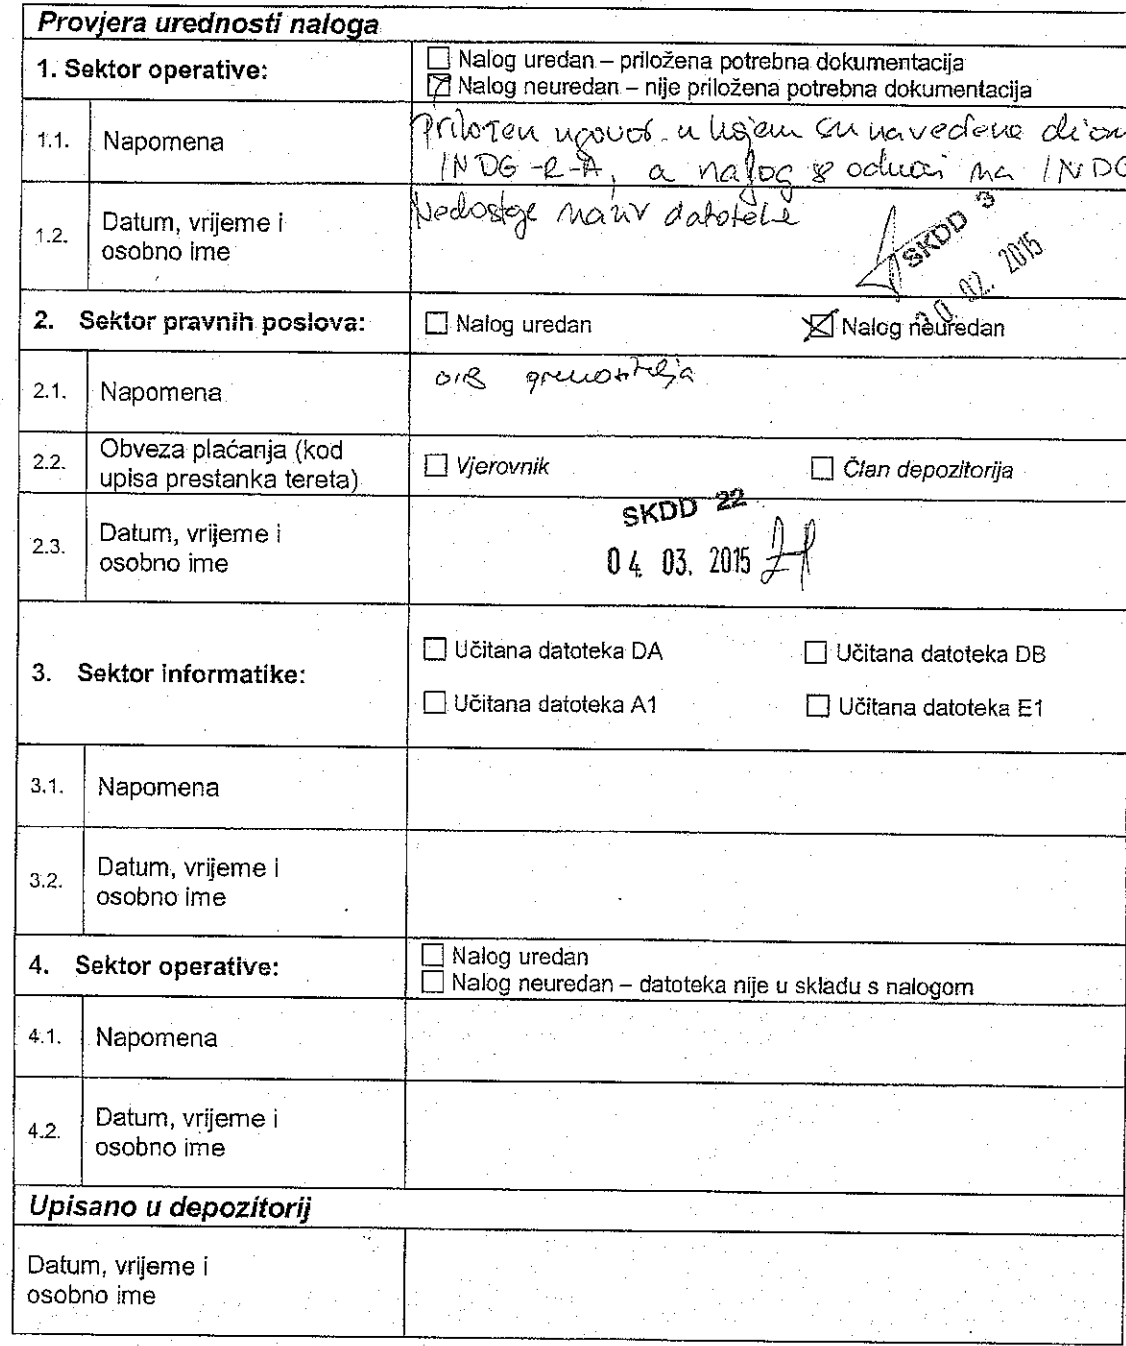 Provjera urednosti naloga
1. Sektor operative:
Nalog uredan – priložena potrebna dokumentacija
Nalog neuredan – nije priložena potrebna dokumentacija
1.1. Napomena
Priložen ugovor u kojem su navedene dion
INDG-R-A, a nalog se odnosi na INDG
1.2. Datum, vrijeme i
osobno ime
Nedostaje naziv datoteke
SKDD 3
02. 2015
2. Sektor pravnih poslova:
Nalog uredan
Nalog neuredan
2.1. Napomena
OIB prenositelja
2.2. Obveza plaćanja (kod
upisa prestanka tereta)
Vjerovnik
Član depozitorija
2.3. Datum, vrijeme i
osobno ime
SKDD 22
04. 03. 2015
3. Sektor informatike:
Učitana datoteka DA
Učitana datoteka DB
Učitana datoteka A1
Učitana datoteka E1
3.1. Napomena
3.2. Datum, vrijeme i
osobno ime
4. Sektor operative:
Nalog uredan
Nalog neuredan – datoteka nije u skladu s nalogom
4.1. Napomena
4.2. Datum, vrijeme i
osobno ime
Upisano u depozitorij
Datum, vrijeme i
osobno ime